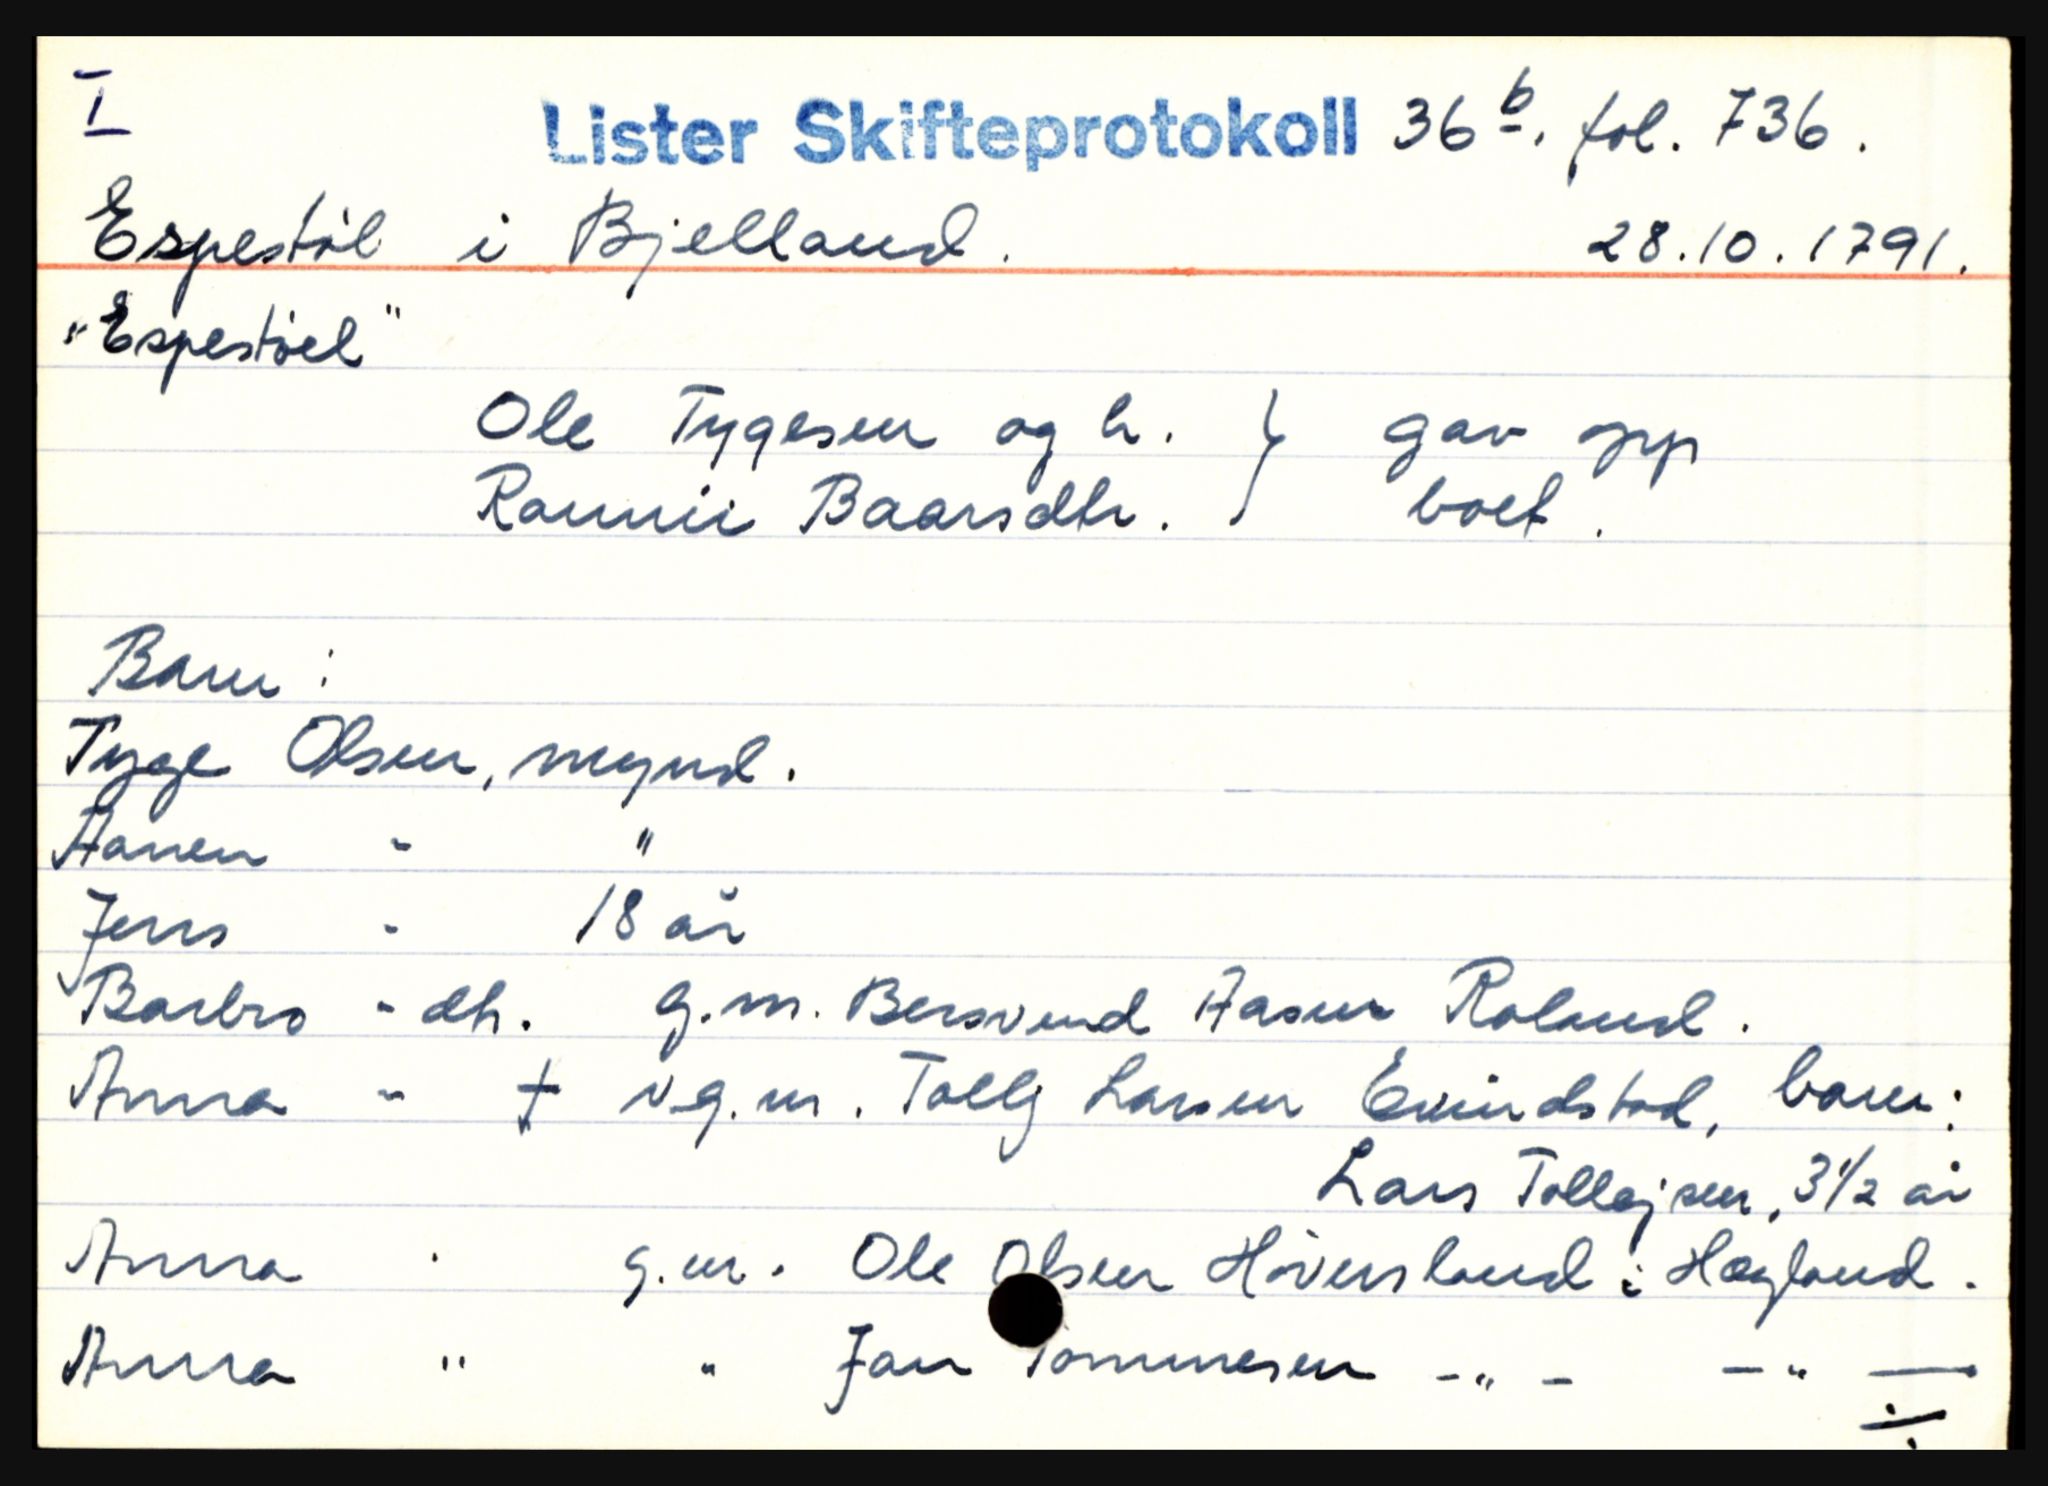 I
Lister Skifteprotokoll 36 b. fol. 736.
Espestøl i Bjelland. 28.10.1791.
"Espestøel"
Ole Tygesen og h. } gav opp
Rannii Baarsdtr. } boet.
Barn:
Tyge Olsen, mynd.
Aanen - "
Jens - 18 år
Barbro - dtr. g.m. Bersvend Aasen Roland.
Anna - † v.g.m. Tollj Larsen Evindstad, barn:
Lars Tollejsen, 3 1/2 år
Anna - g.m. Ole Olsen Høversland i Hægland.
Anna " " Jan Tommesen - " - - " -
./.